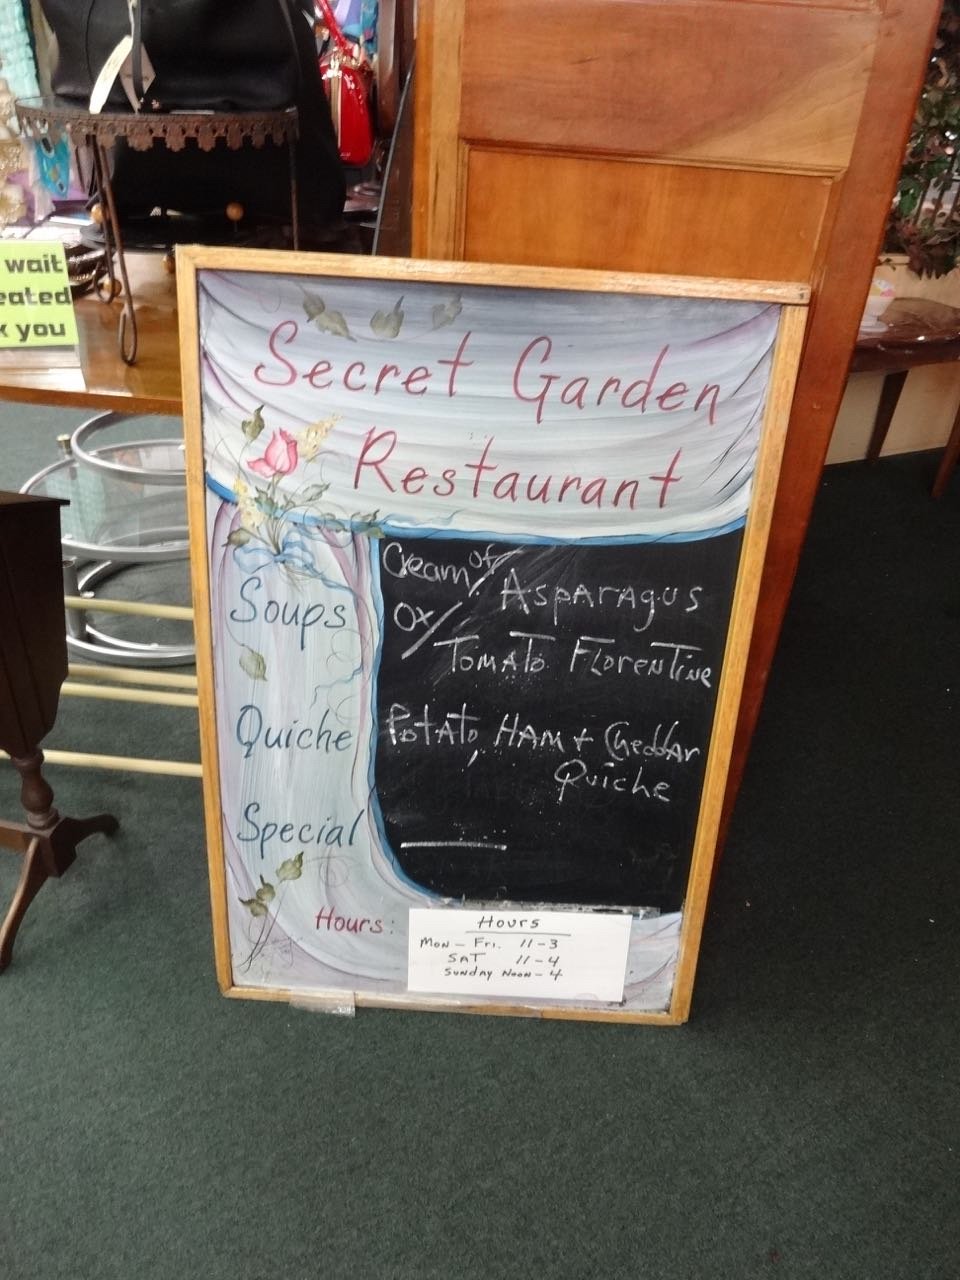 wait
eated
k you
Secret Garden
Restaurant
Soups
Cream of Asparagus
or
Tomato Florentine
Quiche
Potato, Ham + Cheddar
Quiche
Special
Hours:
Hours
Mon - Fri. 11-3
SAT 11-4
Sunday Noon-4